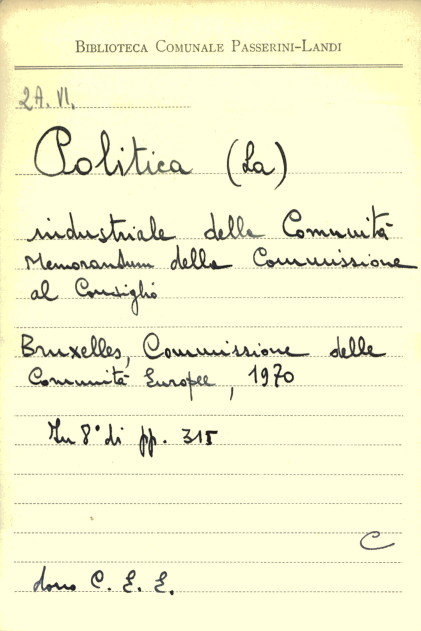 BIBLIOTECA COMUNALE PASSERINI-LANDI
2A. VI.
Politica (La)
industriale della Comunità
Memorandum della Commissione
al Consiglio
Bruxelles, Commissione delle
Comunità Europee, 1970
In 8° di pp. 315
C
dono C. E. E.